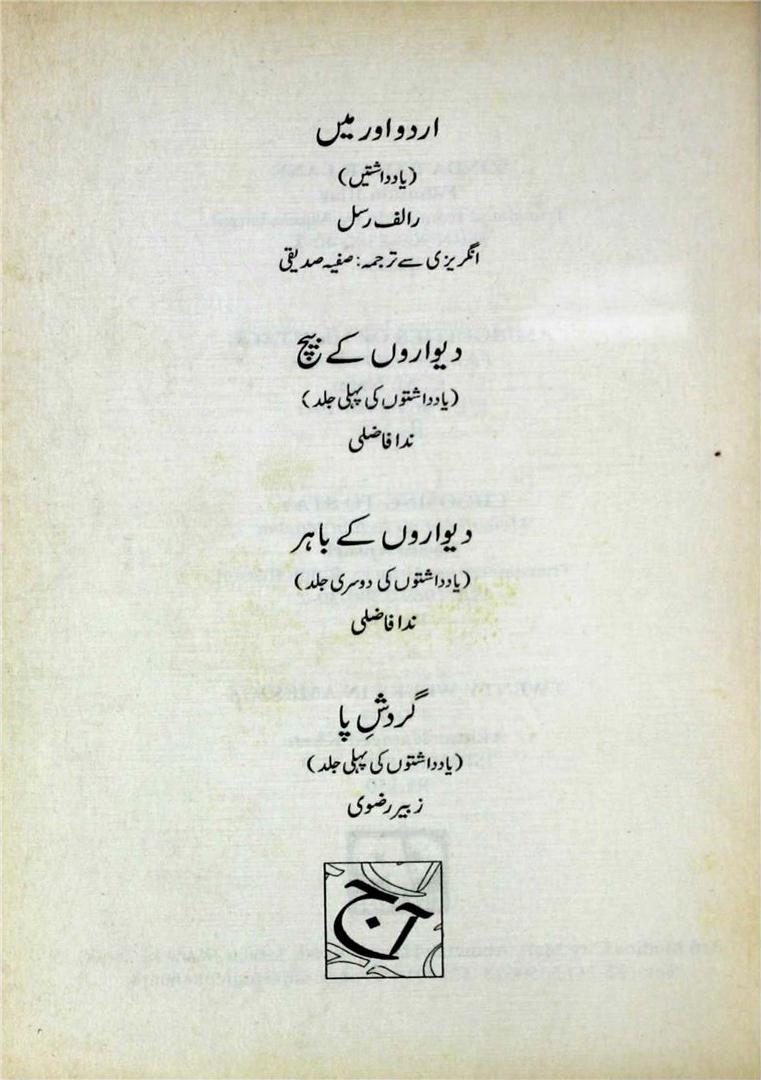 اردو اور میں
(یادداشتیں)
رالف رسل
انگریزی سے ترجمہ: صفیہ صدیقی
دیواروں کے بیچ
(یادداشتوں کی پہلی جلد)
ندا فاضلی
دیواروں کے باہر
(یادداشتوں کی دوسری جلد)
ندا فاضلی
گردشِ پا
(یادداشتوں کی پہلی جلد)
زبیر رضوی
آج